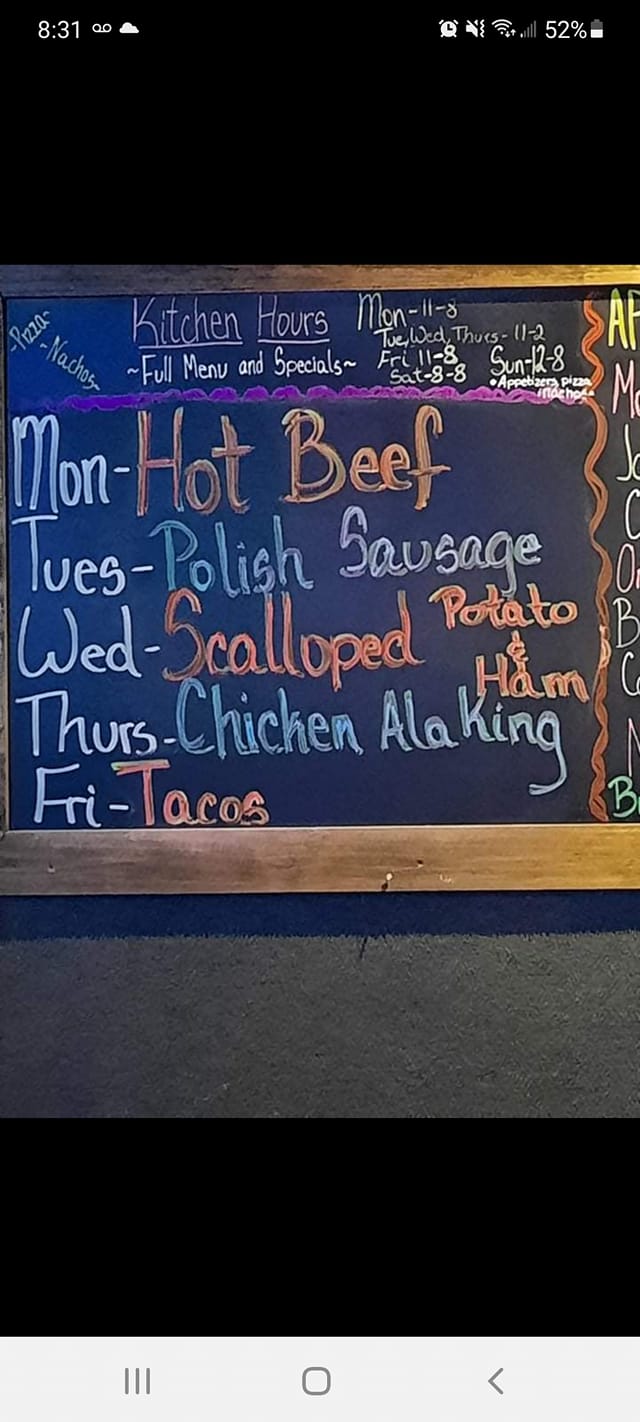 8:31
52%
-Pizza-
-Nachos-
Kitchen Hours
~Full Menu and Specials~
Mon-11-8
Tue, Wed, Thurs-11-2
Fri 11-8
Sat-8-8
Sun-12-8
•Appetizers, pizza,
nachos
Mon-Hot Beef
Tues-Polish Sausage
Wed-Scalloped Potato
& Ham
Thurs-Chicken Ala King
Fri-Tacos